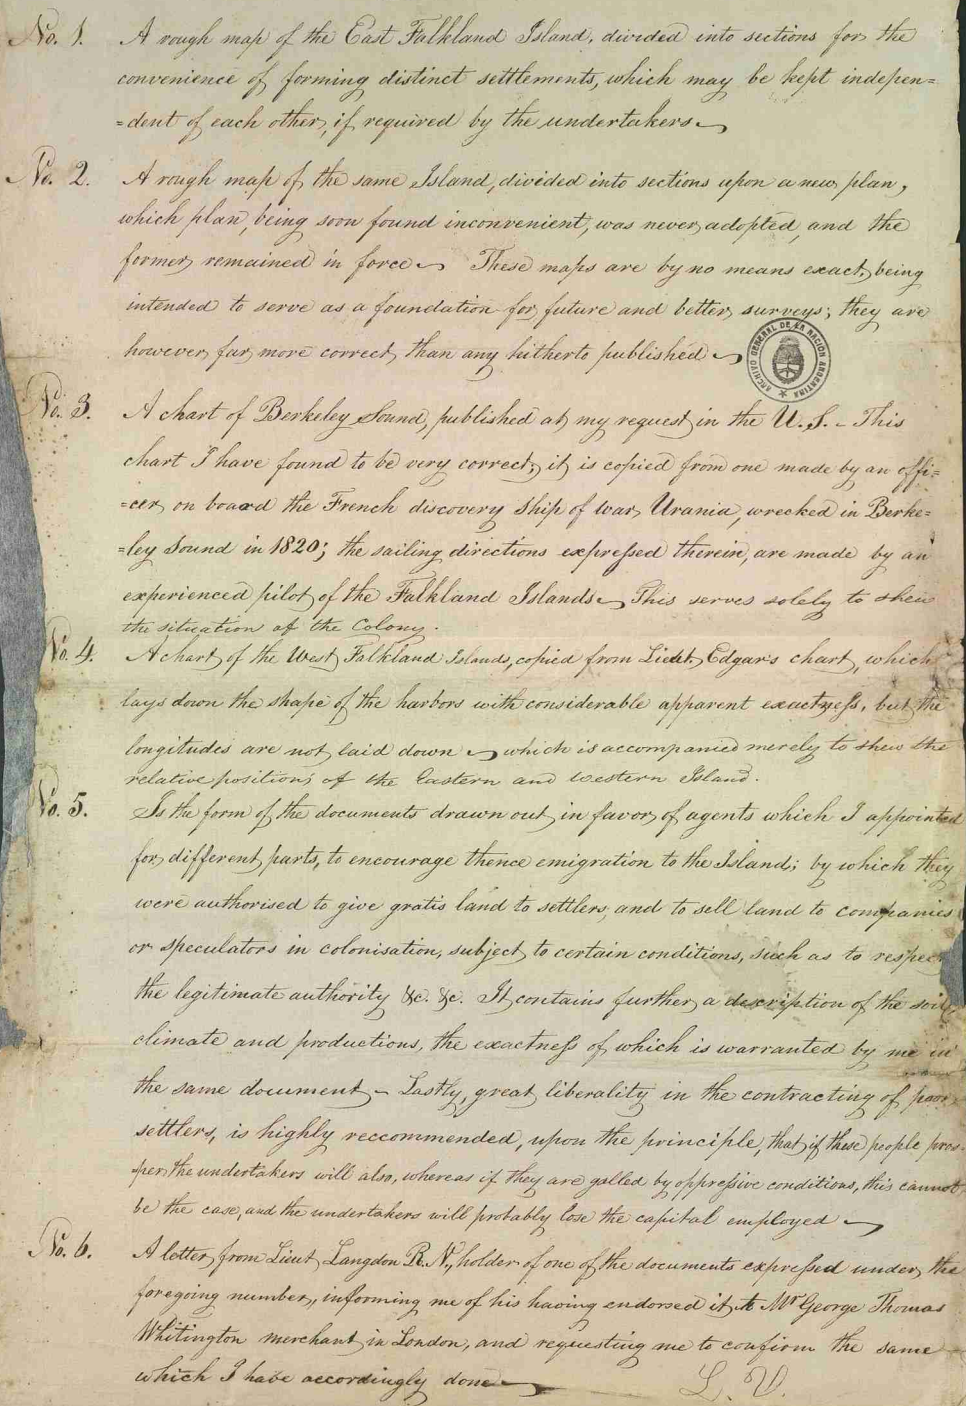 No. 1. A rough map of the East Falkland Island, divided into sections for the
convenience of forming distinct settlements, which may be kept indepen=
=dent of each other, if required by the undertakers
No. 2. A rough map of the same Island, divided into sections upon a new plan,
which plan, being soon found inconvenient, was never adopted, and the
former remained in force These maps are by no means exact, being
intended to serve as a foundation for future and better surveys; they are
however, far more correct, than any hitherto published
ARCHIVO GENERAL DE LA NACION ARGENTINA
No. 3. A chart of Berkeley Sound, published at my request in the U. S. - This
chart I have found to be very correct; it is copied from one made by an offi=
=cer on board the French discovery Ship of War Urania, wrecked in Berke=
=ley Sound in 1820; the sailing directions expressed therein, are made by an
experienced pilot of the Falkland Islands This serves solely to shew
the situation of the Colony.
No. 4. A chart of the West Falkland Islands, copied from Lieut. Edgar's chart, which
lays down the shape of the harbors with considerable apparent exactness, but the
longitudes are not laid down which is accompanied merely to shew the
relative positions of the Eastern and Western Island.
No. 5. Is the form of the documents drawn out in favor of agents which I appointed
for different parts, to encourage thence emigration to the Island; by which they
were authorised to give gratis land to settlers, and to sell land to companies
or speculators in colonisation, subject to certain conditions, such as to respect
the legitimate authority &c. &c. It contains further, a description of the soil,
climate and productions, the exactness of which is warranted by me in
the same document - Lastly, great liberality in the contracting of poor
settlers, is highly reccommended, upon the principle, that if these people pros-
per, the undertakers will also, whereas if they are galled by oppressive conditions, this cannot
be the case, and the undertakers will probably lose the capital employed
No. 6. A letter from Lieut. Langdon R. N., holder of one of the documents expressed under the
foregoing number, informing me of his having endorsed it to Mr George Thomas
Whitington merchant in London, and requesting me to confirm the same
which I have accordingly done
L. V.